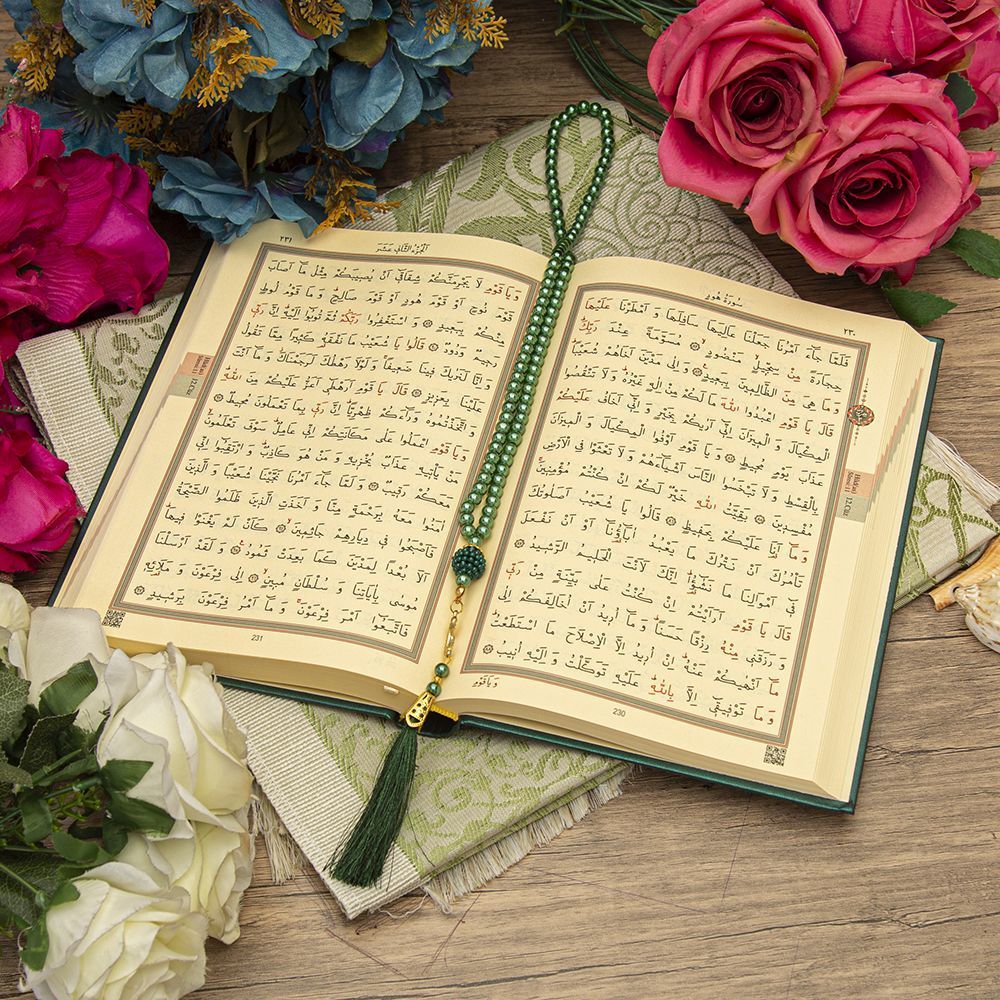 سُورَةُ هُودٍ
٢٣٠
فَلَمَّا جَآءَ اَمْرُنَا جَعَلْنَا عَالِيَهَا سَافِلَهَا وَ اَمْطَرْنَا عَلَيْهَا
حِجَارَةً مِنْ سِجّ۪يلٍ مَنْضُودٍ ۞ مُسَوَّمَةً عِنْدَ رَبِّكَ
وَ مَا هِيَ مِنَ الظَّالِم۪ينَ بِبَع۪يدٍ ۞ وَ اِلٰى مَدْيَنَ اَخَاهُمْ شُعَيْبًا
قَالَ يَا قَوْمِ اعْبُدُوا اللّٰهَ مَا لَكُمْ مِنْ اِلٰهٍ غَيْرُهُ وَ لَا تَنْقُصُوا
الْمِكْيَالَ وَ الْم۪يزَانَ اِنّ۪ٓي اَرٰيكُمْ بِخَيْرٍ وَ اِنّ۪ٓي اَخَافُ عَلَيْكُمْ
عَذَابَ يَوْمٍ مُح۪يطٍ ۞ وَ يَا قَوْمِ اَوْفُوا الْمِكْيَالَ وَ الْم۪يزَانَ
بِالْقِسْطِ وَ لَا تَبْخَسُوا النَّاسَ اَشْيَآءَهُمْ وَ لَا تَعْثَوْا فِي الْاَرْضِ
مُفْسِد۪ينَ ۞ بَقِيَّتُ اللّٰهِ خَيْرٌ لَكُمْ اِنْ كُنْتُمْ مُؤْمِن۪ينَ
وَ مَآ اَنَا عَلَيْكُمْ بِحَف۪يظٍ ۞ قَالُوا يَا شُعَيْبُ اَصَلٰوتُكَ
تَأْمُرُكَ اَنْ نَتْرُكَ مَا يَعْبُدُ اٰبَآؤُنَآ اَوْ اَنْ نَفْعَلَ
ف۪ٓي اَمْوَالِنَا مَا نَشٰٓؤُا اِنَّكَ لَاَنْتَ الْحَل۪يمُ الرَّش۪يدُ ۞
قَالَ يَا قَوْمِ اَرَاَيْتُمْ اِنْ كُنْتُ عَلٰى بَيِّنَةٍ مِنْ رَبّ۪ي
وَ رَزَقَن۪ي مِنْهُ رِزْقًا حَسَنًا وَ مَآ اُر۪يدُ اَنْ اُخَالِفَكُمْ اِلٰى
مَآ اَنْهٰيكُمْ عَنْهُ اِنْ اُر۪يدُ اِلَّا الْاِصْلَاحَ مَا اسْتَطَعْتُ
وَ مَا تَوْف۪يق۪ٓي اِلَّا بِاللّٰهِ عَلَيْهِ تَوَكَّلْتُ وَ اِلَيْهِ اُن۪يبُ
وَيَاقَوْمِ
230
12.Cüz
اَلْجُزْءُ الثَّان۪ي عَشَرَ
٢٣١
وَ يَا قَوْمِ لَا يَجْرِمَنَّكُمْ شِقَاق۪ٓي اَنْ يُص۪يبَكُمْ مِثْلُ مَآ اَصَابَ
قَوْمَ نُوحٍ اَوْ قَوْمَ هُودٍ اَوْ قَوْمَ صَالِحٍ وَ مَا قَوْمُ لُوطٍ
مِنْكُمْ بِبَع۪يدٍ ۞ وَ اسْتَغْفِرُوا رَبَّكُمْ ثُمَّ تُوبُٓوا اِلَيْهِ اِنَّ رَبّ۪ي
رَح۪يمٌ وَدُودٌ ۞ قَالُوا يَا شُعَيْبُ مَا نَفْقَهُ كَث۪يرًا مِمَّا تَقُولُ
وَ اِنَّا لَنَرٰيكَ ف۪ينَا ضَع۪يفًا وَ لَوْلَا رَهْطُكَ لَرَجَمْنَاكَ وَ مَآ اَنْتَ
عَلَيْنَا بِعَز۪يزٍ ۞ قَالَ يَا قَوْمِ اَرَهْط۪ٓي اَعَزُّ عَلَيْكُمْ مِنَ اللّٰهِ
وَ اتَّخَذْتُمُوهُ وَرَآءَكُمْ ظِهْرِيًّا اِنَّ رَبّ۪ي بِمَا تَعْمَلُونَ مُح۪يطٌ ۞
وَ يَا قَوْمِ اعْمَلُوا عَلٰى مَكَانَتِكُمْ اِنّ۪ي عَامِلٌ سَوْفَ تَعْلَمُونَ
مَنْ يَأْت۪يهِ عَذَابٌ يُخْز۪يهِ وَ مَنْ هُوَ كَاذِبٌ وَ ارْتَقِبُٓوا اِنّ۪ي
مَعَكُمْ رَق۪يبٌ ۞ وَ لَمَّا جَآءَ اَمْرُنَا نَجَّيْنَا شُعَيْبًا وَ الَّذ۪ينَ
اٰمَنُوا مَعَهُ بِرَحْمَةٍ مِنَّا وَ اَخَذَتِ الَّذ۪ينَ ظَلَمُوا الصَّيْحَةُ
فَاَصْبَحُوا ف۪ي دِيَارِهِمْ جَاثِم۪ينَ ۞ كَاَنْ لَمْ يَغْنَوْا ف۪يهَا
اَلَا بُعْدًا لِمَدْيَنَ كَمَا بَعِدَتْ ثَمُودُ ۞ وَ لَقَدْ اَرْسَلْنَا
مُوسٰى بِاٰيَاتِنَا وَ سُلْطَانٍ مُب۪ينٍ ۞ اِلٰى فِرْعَوْنَ وَ مَلَا۬ئِه۪
فَاتَّبَعُٓوا اَمْرَ فِرْعَوْنَ وَ مَآ اَمْرُ فِرْعَوْنَ بِرَش۪يدٍ ۞
231
12.Cüz